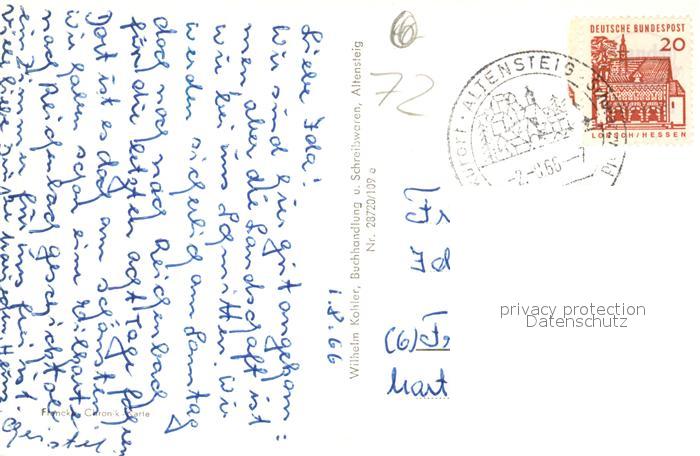 1.8.66
Liebe Ida!
Wir sind hier gut angekom=
men, aber die Landschaft ist
wie bei uns da mitten. Wir
werden sicherlich am Samstag
doch noch nach Reichenbach
für die letzten acht Tage fahren
Dort ist es doch am schönsten
Wir haben schon eine Karte
nach Reichenbach geschickt ob
ein Zimmer für uns frei ist.
Viele liebe Grüße
Franckh Chronik-Karte
Wilhelm Kohler, Buchhandlung u. Schreibwaren, Altensteig
Nr. 28720/109 e
6
72
DEUTSCHE BUNDESPOST
20
LORSCH/HESSEN
ALTENSTEIG
-2.-8.66-7
Fr
Id
(6) Fr
privacy protection
Datenschutz